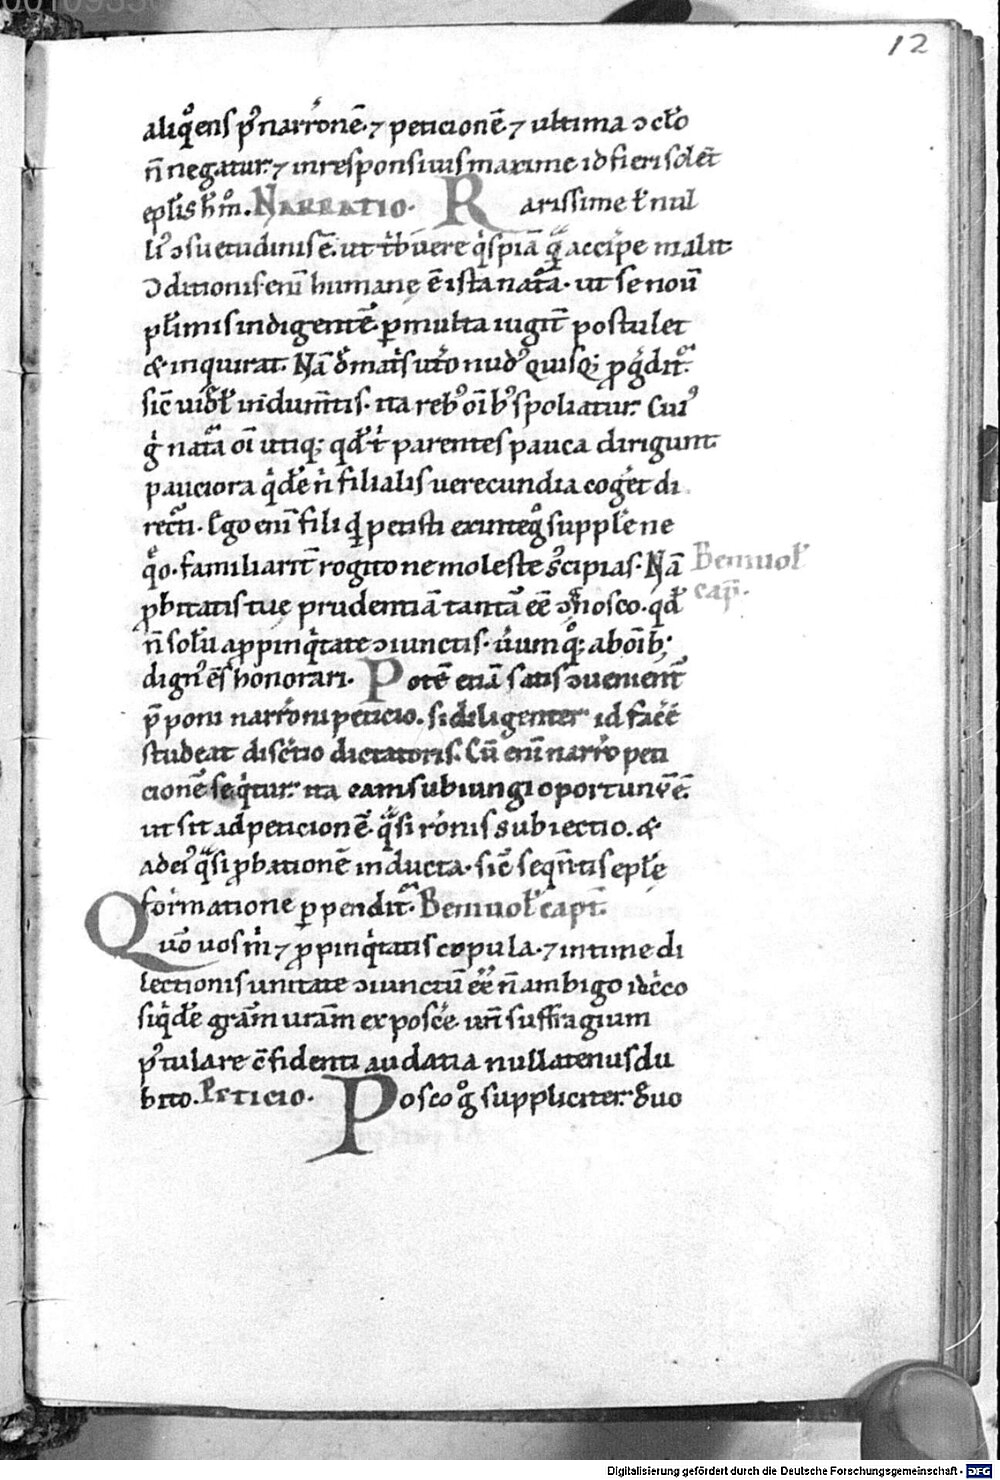 12
aliq̊ens pꝰ narrͦonē ⁊ peticionē ⁊ ultima ɔcłͦo
n̄ negatur ⁊ in responsiuis maxime id fieri solet̄
epłis hͦm. NARRATIO. Rarissime ł nul
liꝰ ɔsuetudinis ē. ut
accipe malit
ɔditionis enī humanę ē ista nat̃a. ut se nou̅
płimis indigentē. ꝑ multa iugit̄ postulet
& inquirat. Nā
nudꝰ quisq; ꝓg̃dit̃.
sic̄
indum̄tis. ita rebꝰ oībꝰ spoliatur. Cuiꝰ
gͥ nat̃a oī utiq; qđ
parentes pauca dirigunt
pauciora qͥdē n̄ filialis uerecundia coget di
recti. Ego enī fili
petisti exinteg̊ supplē ne
q̊o. familiarit̄ rogito ne moleste
Nā
Beniuoł
capt̄.
ꝓbitatis tuę prudentiā tantā eē ɔgnosco. qđ
n̄ solū appinqͥtate ɔiunctis. uͥum q̊q; ab oīb;
dignꝰ es honorari. Potē etiā satis ɔuenient̃
p̄poni narrͦoni peticio. si diligenter id facē
studeat discͥtio dictatoris. Cū enī narrͦo peti
cionē seqͥtur. ita eam subiungi oportunū ē.
ut sit ad peticionē q̃si rͦonis subiectio. &
ad eiꝰ q̃si ꝓbationē inducta. sic̄ seqn̄tis epłę
formatione ꝑpendit̃. Beniuoł capt̄.
Quͦo uos m̄ ⁊ ꝓpinqͥtatis copula. ⁊ intime di
lectionis unitate ɔiunctū eē n̄ ambigo idcͥco
siqͥdē gr̄am ur̄am exposcē. urī suffragium
pꝰtulare c̄fidenti audatia nullatenus du
bito. PETICIO. Posco g̊ suppliciter. đuo
Digitalisierung gefördert durch die Deutsche Forschungsgemeinschaft - DFG